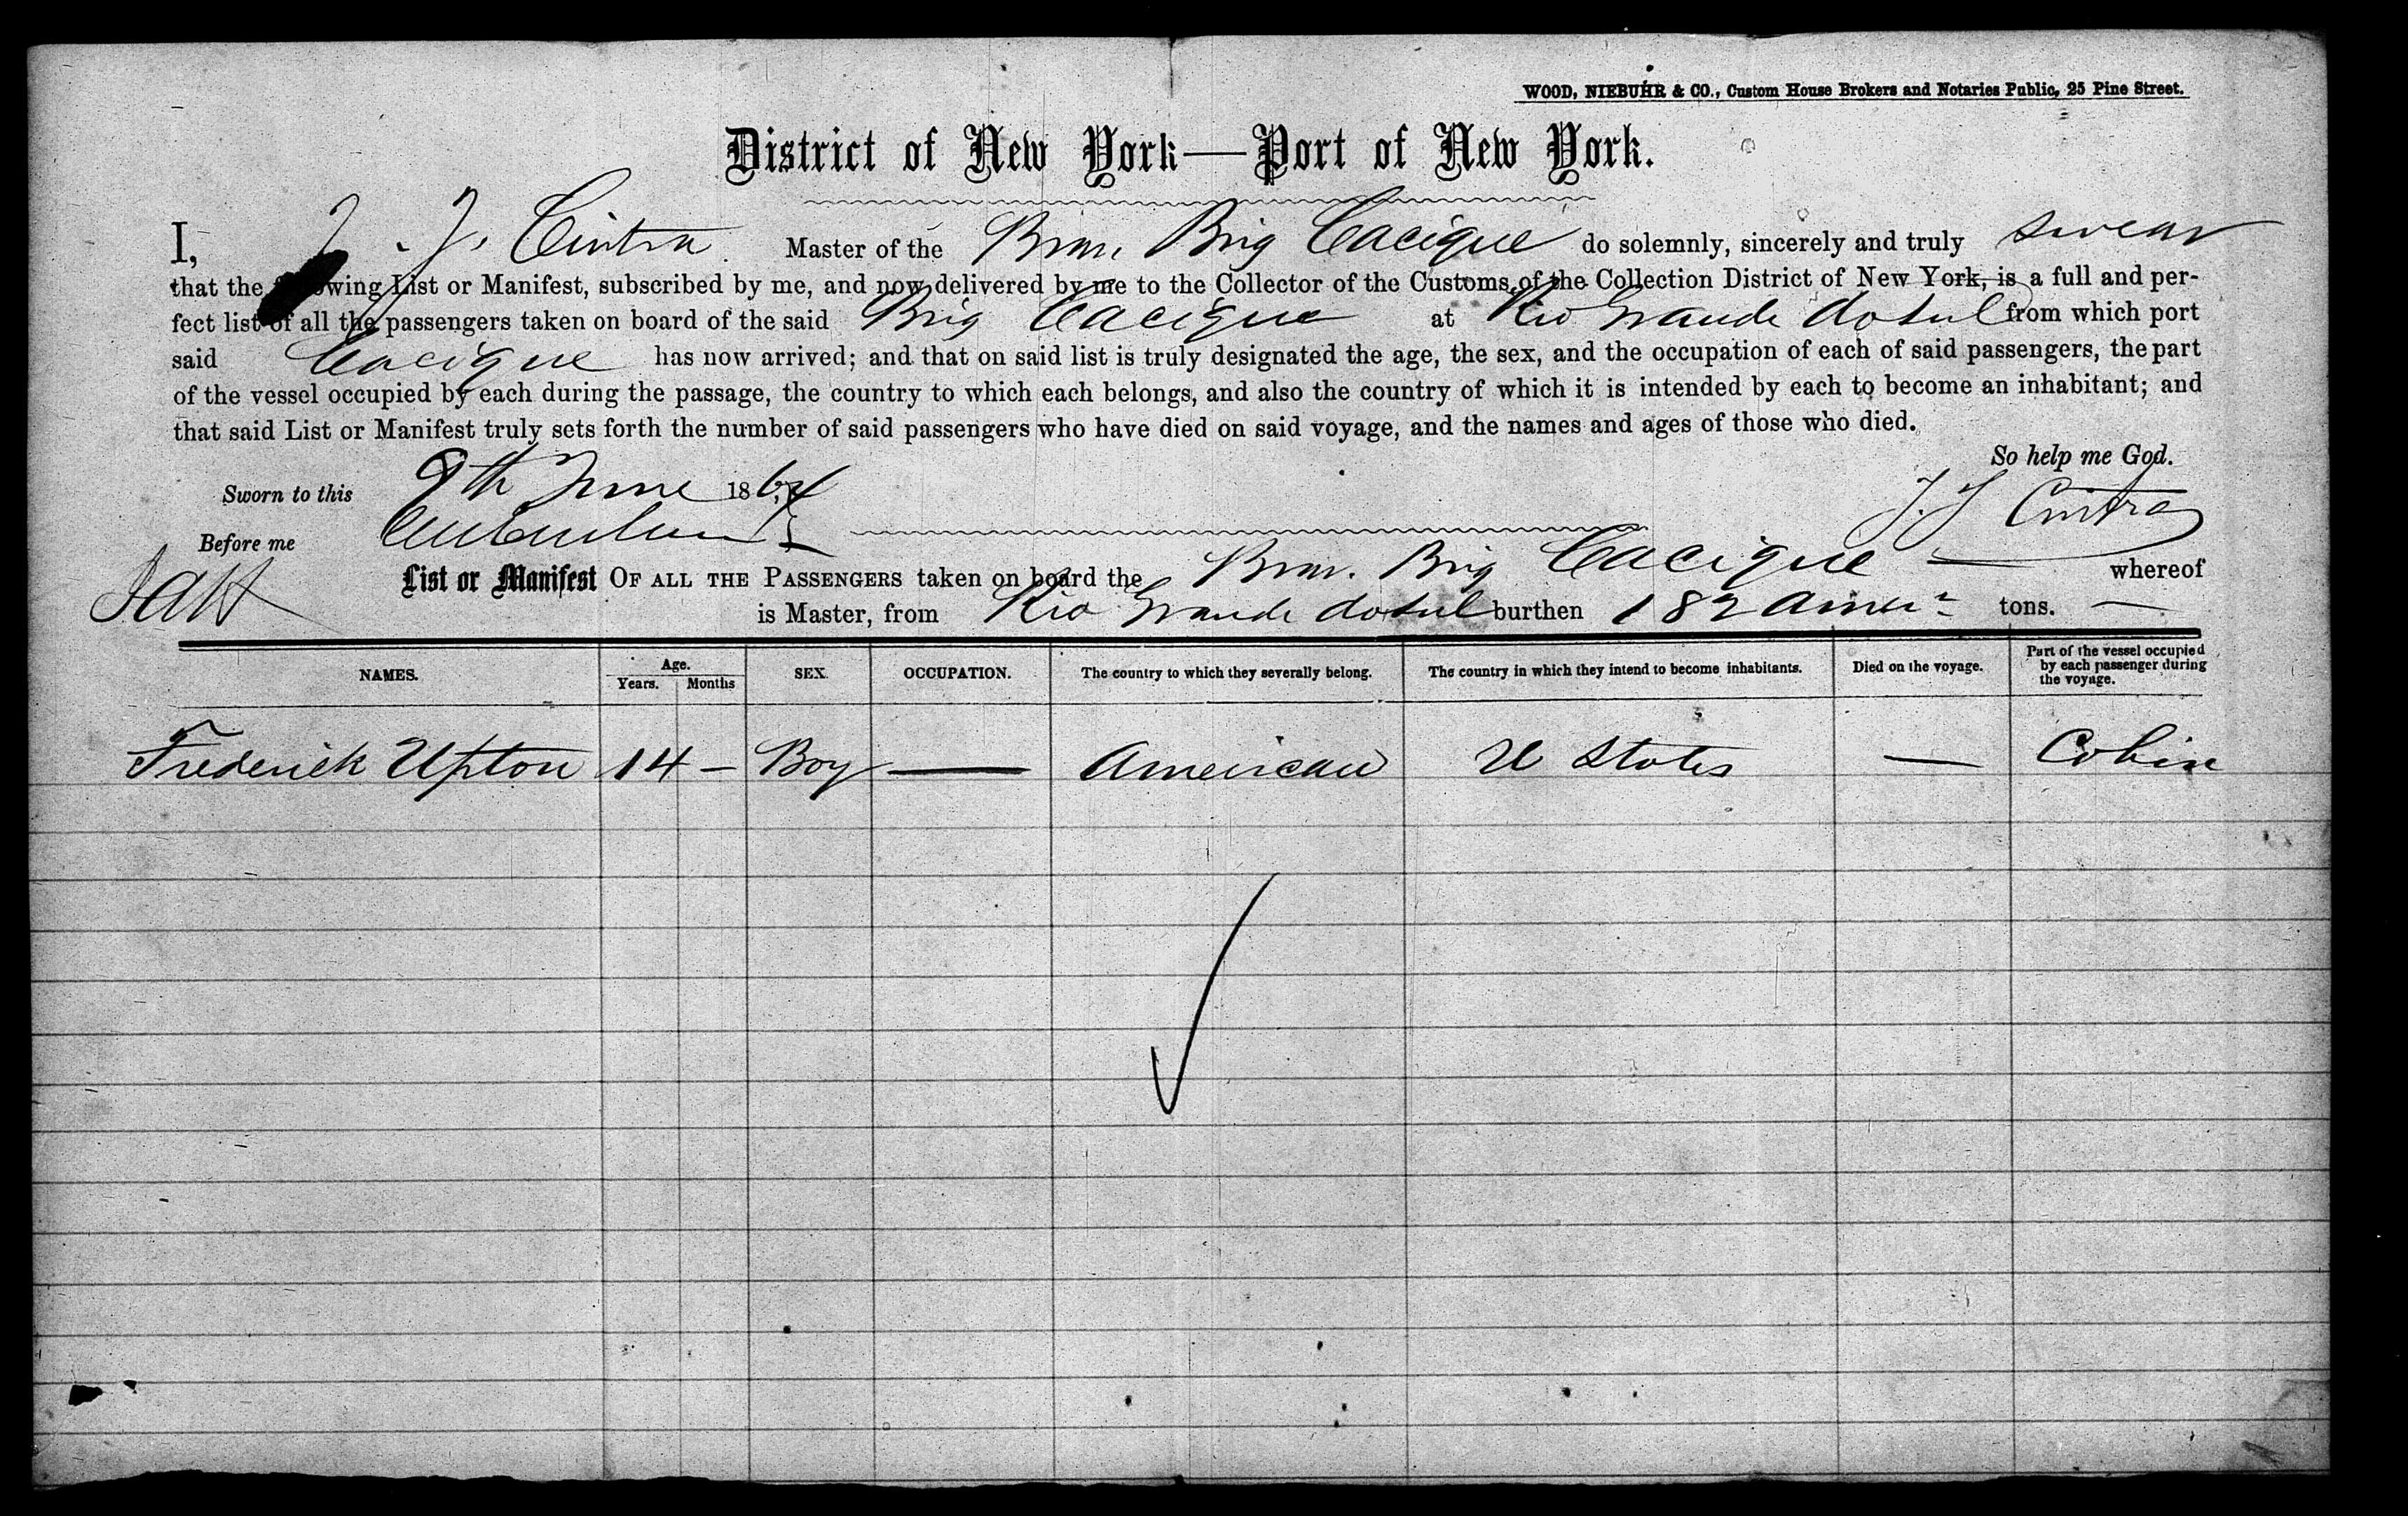 WOOD, NIEBUHR & CO., Custom House Brokers and Notaries Public, 25 Pine Street.
District of New York—Port of New York.
I, J. J. Cintra Master of the Brem. Brig Cacique do solemnly, sincerely and truly swear
that the following List or Manifest, subscribed by me, and now delivered by me to the Collector of the Customs of the Collection District of New York, is a full and per-
fect list of all the passengers taken on board of the said Brig Cacique at Rio Grande do Sul from which port
said Cacique has now arrived; and that on said list is truly designated the age, the sex, and the occupation of each of said passengers, the part
of the vessel occupied by each during the passage, the country to which each belongs, and also the country of which it is intended by each to become an inhabitant; and
that said List or Manifest truly sets forth the number of said passengers who have died on said voyage, and the names and ages of those who died.
So help me God.
Sworn to this 9th June 1864
J. J Cintra
Before me
List or Manifest OF ALL THE PASSENGERS taken on board the Brem. Brig Cacique — whereof
is Master, from Rio Grande do Sul burthen 182 Amer tons. —
NAMES. Age. Years. Months SEX. OCCUPATION. The country to which they severally belong. The country in which they intend to become inhabitants. Died on the voyage. Part of the vessel occupied by each passenger during the voyage.
Frederick Upton 14 — Boy — American U States — Cabin